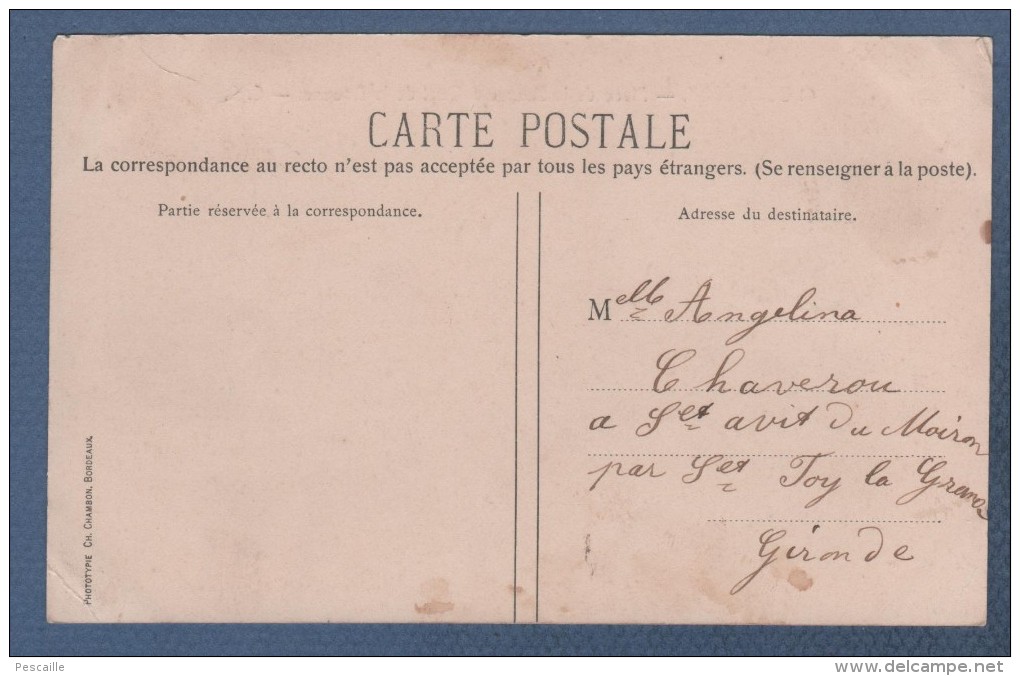 CARTE POSTALE
La correspondance au recto n'est pas acceptée par tous les pays étrangers. (Se renseigner à la poste).
Partie réservée à la correspondance.
Adresse du destinataire.
Melle Angelina
Chaverou
a Set avit Du Moiron
par Set Foy la Grande
Gironde
PHOTOTYPIE CH. CHAMBON, BORDEAUX.
Pescaille
www.delcampe.net